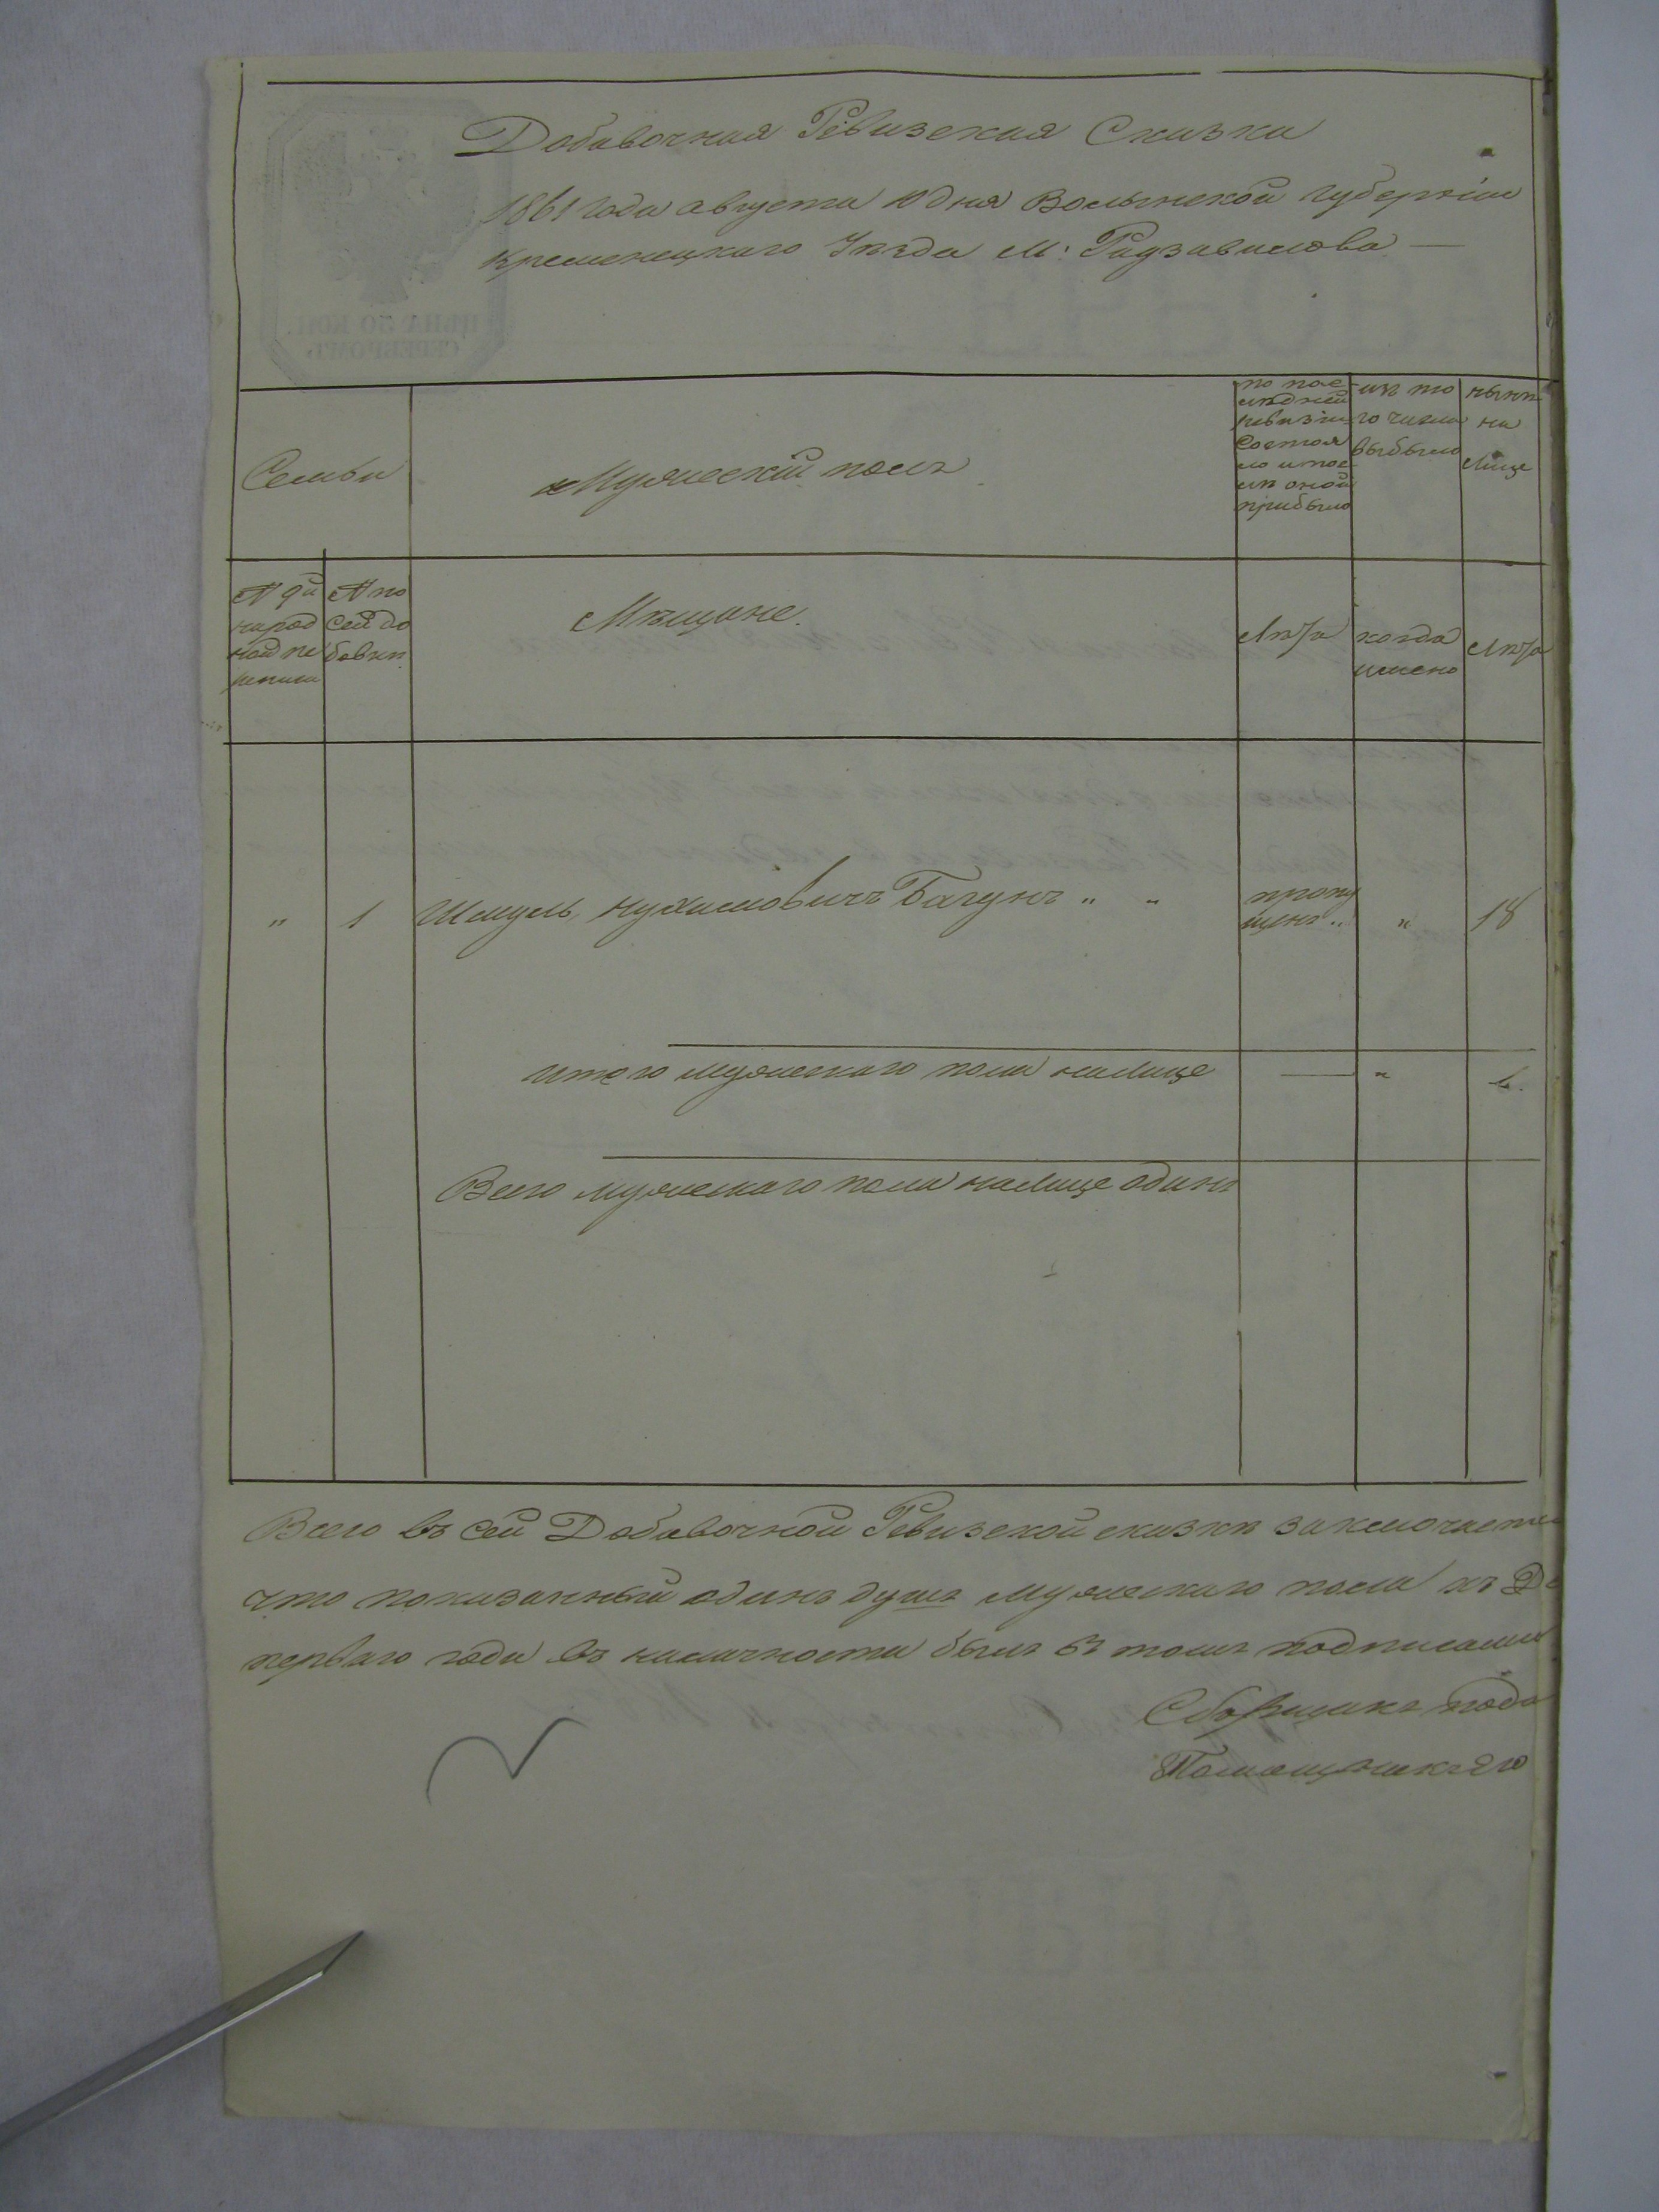 Добавочная Ревизская Сказка
1861 года августа 10 дня Волынской губерніи
Кременецкаго Уѣзда М: Радзивилова
ЦѢНА 30 КОП.
СЕРЕБРОМЪ.
Семьи
Мужескій полъ
по пос
лѣдней
ревизіи
состоя
ло и пос
лѣ оной
прибыло
изъ то
го числа
выбыло
нынѣ
на
лице
№ 9й
народ
ной пе
реписи
№ по
сей до
бавкѣ
Мѣщане.
Лѣта
когда
имено
Лѣта
" 1 Шмуль Нухимовичъ Багунъ " "
пропу
щенъ " " 18
итого мужескаго пола налице — " 1.
Всего мужескаго пола налице одинъ
Всего въ сей Добавочной Ревизской сказкѣ заключается
что показанный одинъ душъ мужескаго пола къ
перваго года въ наличности былъ въ томъ подписали
Сборщикъ пода
Помощникъ его